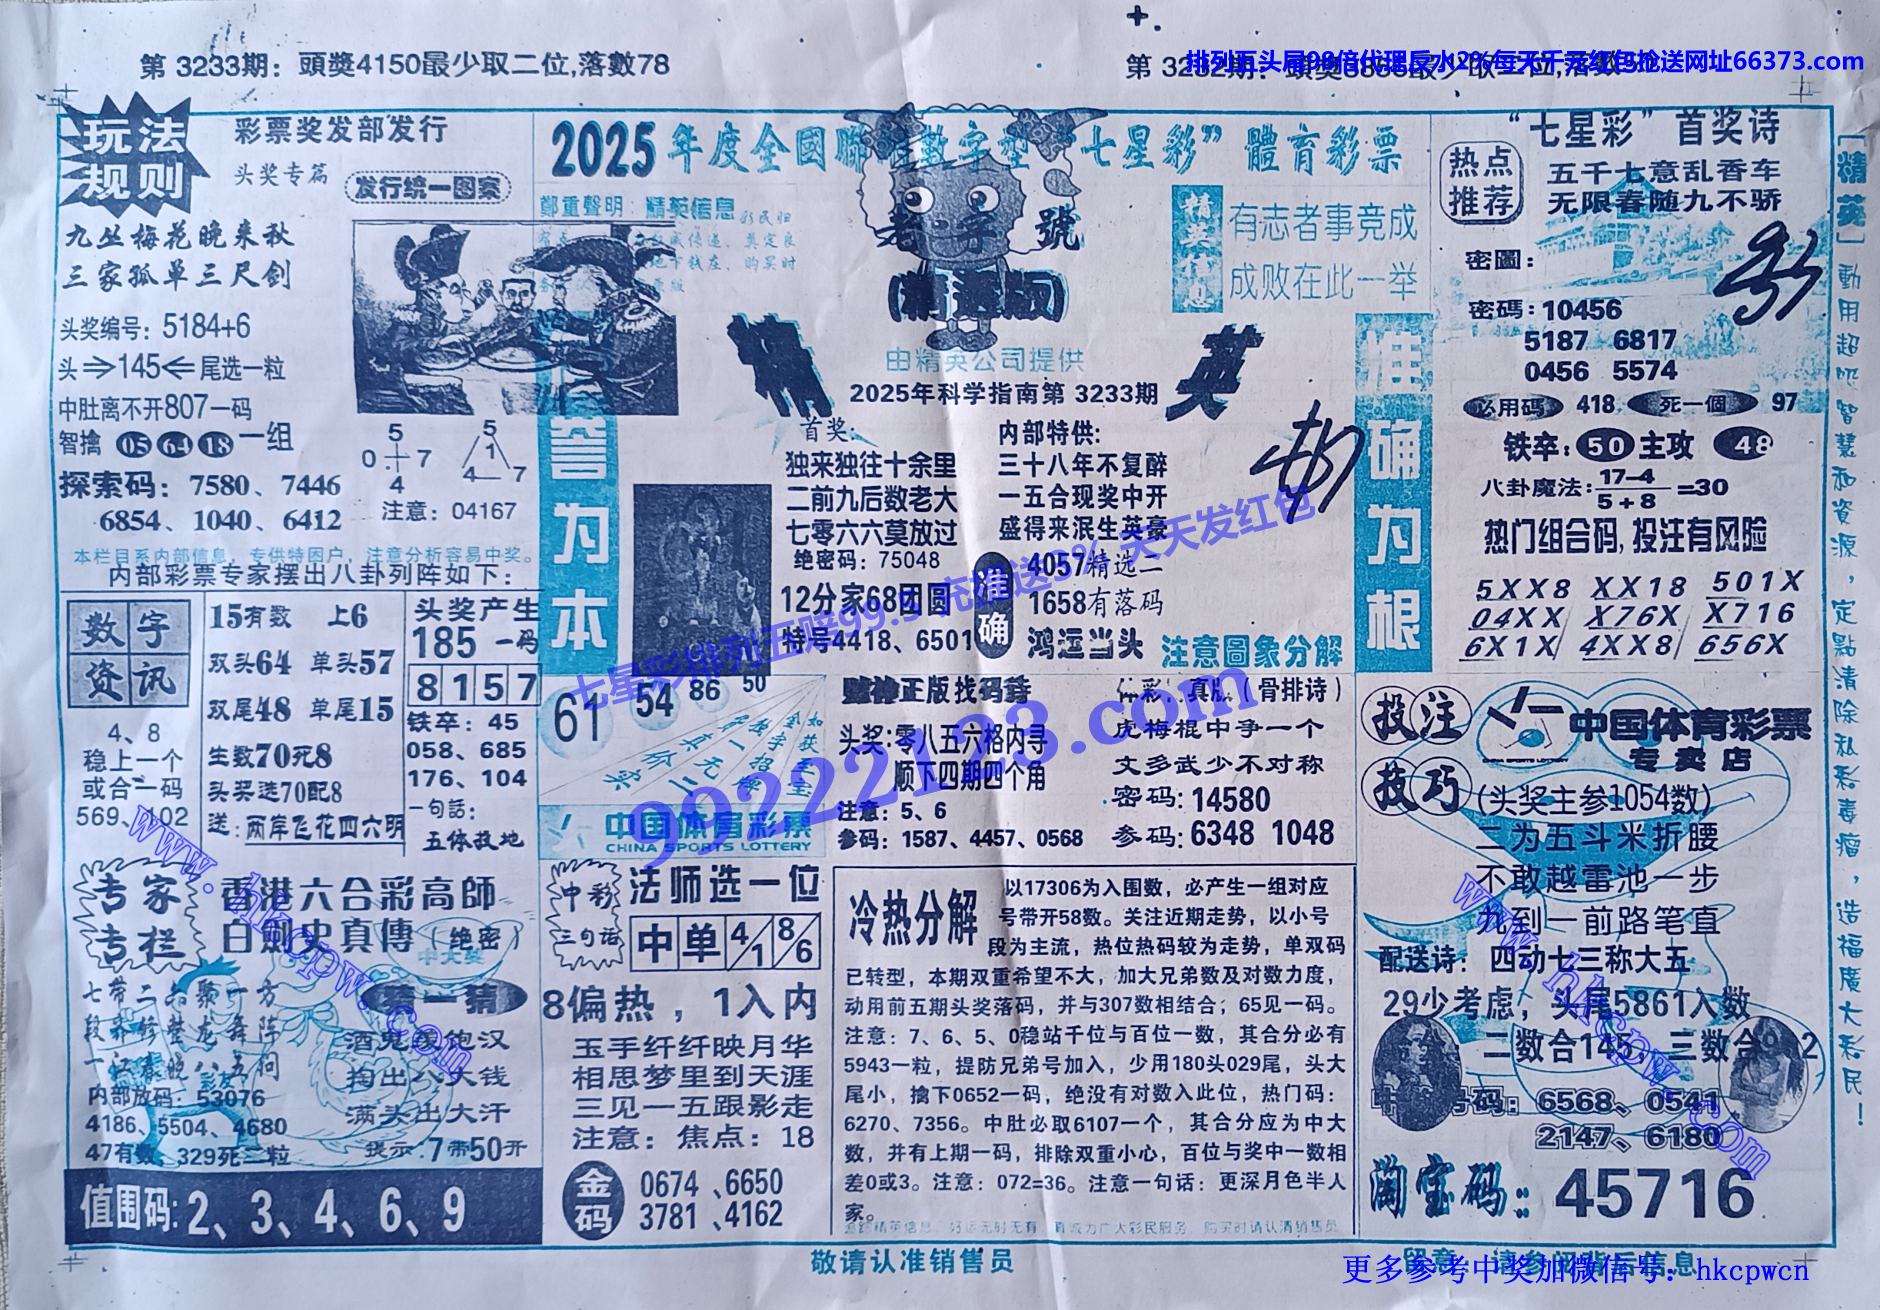 第 3233期：頭獎4150最少取二位,落數78
排列五头尾98倍代理反水2%每天千元红包抢送网址66373.com
玩法
规则
彩票奖发部发行
头奖专篇
发行统一图案
九丛梅花晚来秋
三家孤单三尺剑
头奖编号：5184+6
头⇒145⇐尾选一粒
中肚离不开807一码
智擒 05 64 18 一组
探索码：7580、7446
6854、1040、6412
5
0 7
4
5
1
4 7
注意：04167
本栏目系内部信息，专供特困户，注意分析容易中奖。
内部彩票专家摆出八卦列阵如下：
数字
资讯
4、8
稳上一个
或合一码
15有数 上6
双头64 单头57
双尾48 单尾15
生数70死8
头奖选70配8
送：两岸飞花四六明
头奖产生
185 一码
8 1 5 7
铁卒：45
058、685
176、104
一句話：
五体投地
专家
专栏
香港六合彩高師
白剑史真傳（绝密）
猜一猜
内部放码：53076
4186、5504、4680
47有数、329死一粒
满头出大汗
提示：7带50开
值围码：2、3、4、6、9
2025年度全國聯  數字型“七星彩”體育彩票
鄭重聲明：精英信息
老字號
(精選版)
由精英公司提供
2025年科学指南第 3233期
精 英
有志者事竟成
成败在此一举
誉为本
首奖：
独来独往十余里
二前九后数老大
七零六六莫放过
绝密码：75048
12分家68团圆
特号4418、6501
内部特供：
三十八年不复醉
一五合现奖中开
盛得来泯生英豪
准确
4057精选二
1658有落码
鸿运当头
注意圖象分解
准确为根
61 54 86 50
中国体育彩票
CHINA SPORTS LOTTERY
赌神正版找码诗
头奖：零八五六格内寻
顺下四期四个角
注意：5、6
参码：1587、4457、0568
体彩（真版）（骨排诗）
虎梅棍中争一个
文多武少不对称
密码：14580
参码：6348 1048
中彩
三句话
法师选一位
中 单 4/1 8/6
8偏热，1入内
玉手纤纤映月华
相思梦里到天涯
三见一五跟影走
注意：焦点：18
金码
0674、6650
3781、4162
冷热分解
以17306为入围数，必产生一组对应
号带开58数。关注近期走势，以小号
段为主流，热位热码较为走势，单双码
已转型，本期双重希望不大，加大兄弟数及对数力度，
动用前五期头奖落码，并与307数相结合；65见一码。
注意：7、6、5、0稳站千位与百位一数，其合分必有
5943一粒，提防兄弟号加入，少用180头029尾，头大
尾小，擒下0652一码，绝没有对数入此位，热门码：
6270、7356。中肚必取6107一个，其合分应为中大
数，并有上期一码，排除双重小心，百位与奖中一数相
差0或3。注意：072=36。注意一句话：更深月色半人
家。
敬请认准销售员
“七星彩”首奖诗
热点
推荐
五千七意乱香车
无限春随九不骄
密圖：
密碼：10456
5187 6817
0456 5574
必用碼 418 死一個 97
铁卒：50 主攻 48
八卦魔法：17-4/5+8=30
热门组合码,投注有风险
5XX8 XX18 501X
04XX X76X X716
6X1X 4XX8 656X
投注
技巧
中国体育彩票
专卖店
(头奖主参1054数)
二为五斗米折腰
不敢越雷池一步
九到一前路笔直
配送诗：四动七三称大五
29少考虑，头尾5861入数
6568、0541
2147、6180
淘宝码：45716
[精英]動用超 智慧和資源，定點清除私彩毒瘤，造福廣大彩民！
七星彩排列五赔99.5 充提送3% 天天发红包
99222123.com
www.hkcpw.com
www.hkcpw.com
更多参考中奖加微信号：hkcpwcn